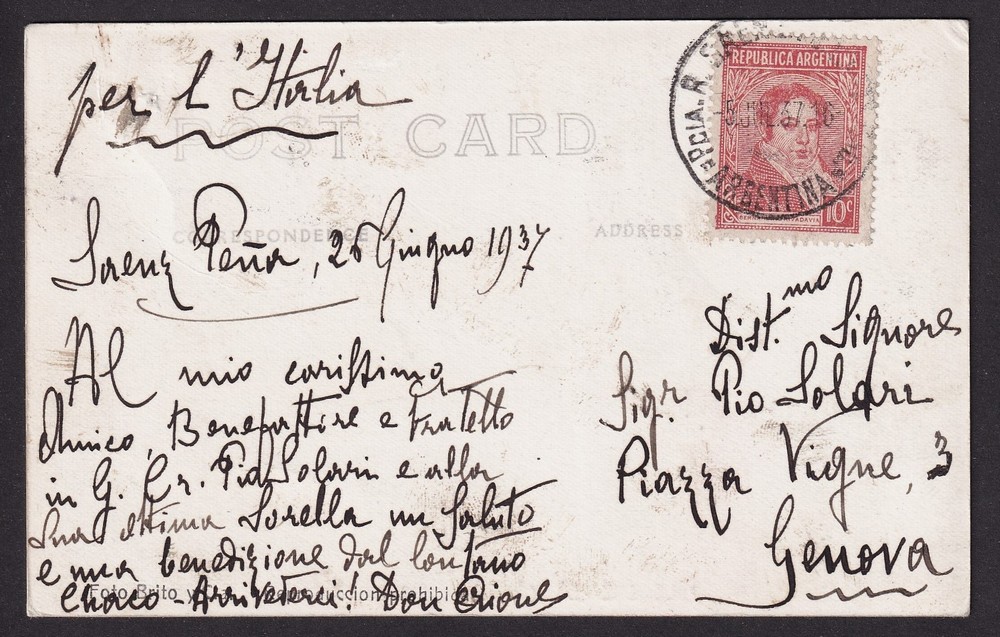 per l'Italia
POST CARD
REPUBLICA ARGENTINA
PCIA. R. S.
5 JUL 37 16
ARGENTINA
10c
CORRESPONDENCE
ADDRESS
Saenz Peña, 26 Giugno 1937
Al mio carissimo
Amico, Benefattore e Fratello
in G. Cr. Pio Solari e alla
Sua ottima Sorella un Saluto
e una benedizione dal lontano
Chaco - Arrivederci! Don Orione
Foto Brito y Reproduccion prohibida
Dist.mo Signore
Sigr. Pio Solari
Piazza Vigne, 3
Genova